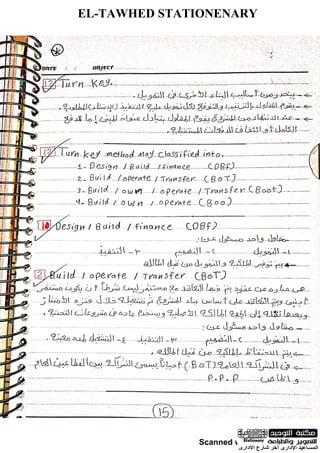 EL-TAWHED STATIONENARY
DATE / / OBJECT
12 Turn Key.
من أساليب البناء الأخرى فى التمويل.
يقوم المقاول بالترتيب والتوقيع لكل تمويل عملية التنفيذ المطلوبة.
عند الانتهاء من المشروع يقوم المقاول
الكامل أو
12 Turn key method may classified into.
1- Design / Build / finance (DBF)
2- Build / operate / Transfer (BoT)
3- Build / own / operate / Transfer (Boot)
4- Build / own / operate (Boo)
10 Design / Build / finance (DBF)
مقاول واحد مسئول عن:
١- التمويل ٢- التصميم ٣- التنفيذ
يتم توفير الملكية والتمويل من قبل المالك
2 Build / operate / Transfer (BoT)
هى عبارة عن عقود يتم فيها التعاقد مع مستثمر ليس شرطاً أن يكون مستثمر
أجنبى ويتم التعاقد على أساس بناء المشروع ثم تشغيله خلال فترة الامتياز
وبعدها نقله إلى الجهة المالكة الأصلية ويستخدم عادة فى مشروعات البنية التحتية.
مقاول واحد مسئول عن:
١- التمويل ٢- التصميم ٣- التنفيذ ٤- التشغيل لمدة معينة.
يتم الاحتفاظ بالملكية من قبل المالك.
فى الشراكة العامة (BOT) أحياناً يسمى الشراكة بين القطاعين العام
والخاص P.P.P
15
Scanned
مكتبة التوحيد
Stationery
للتصوير والطباعة
المساعيد الإدارى آخر شارع الإدارى